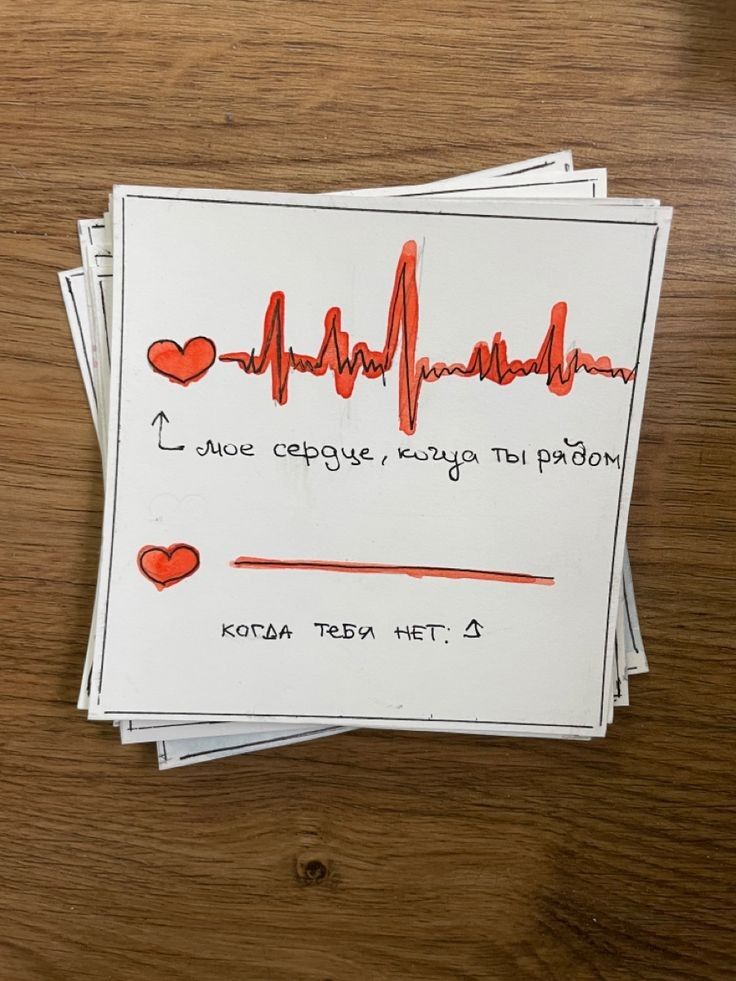 мое сердце, когда ты рядом
когда тебя нет: